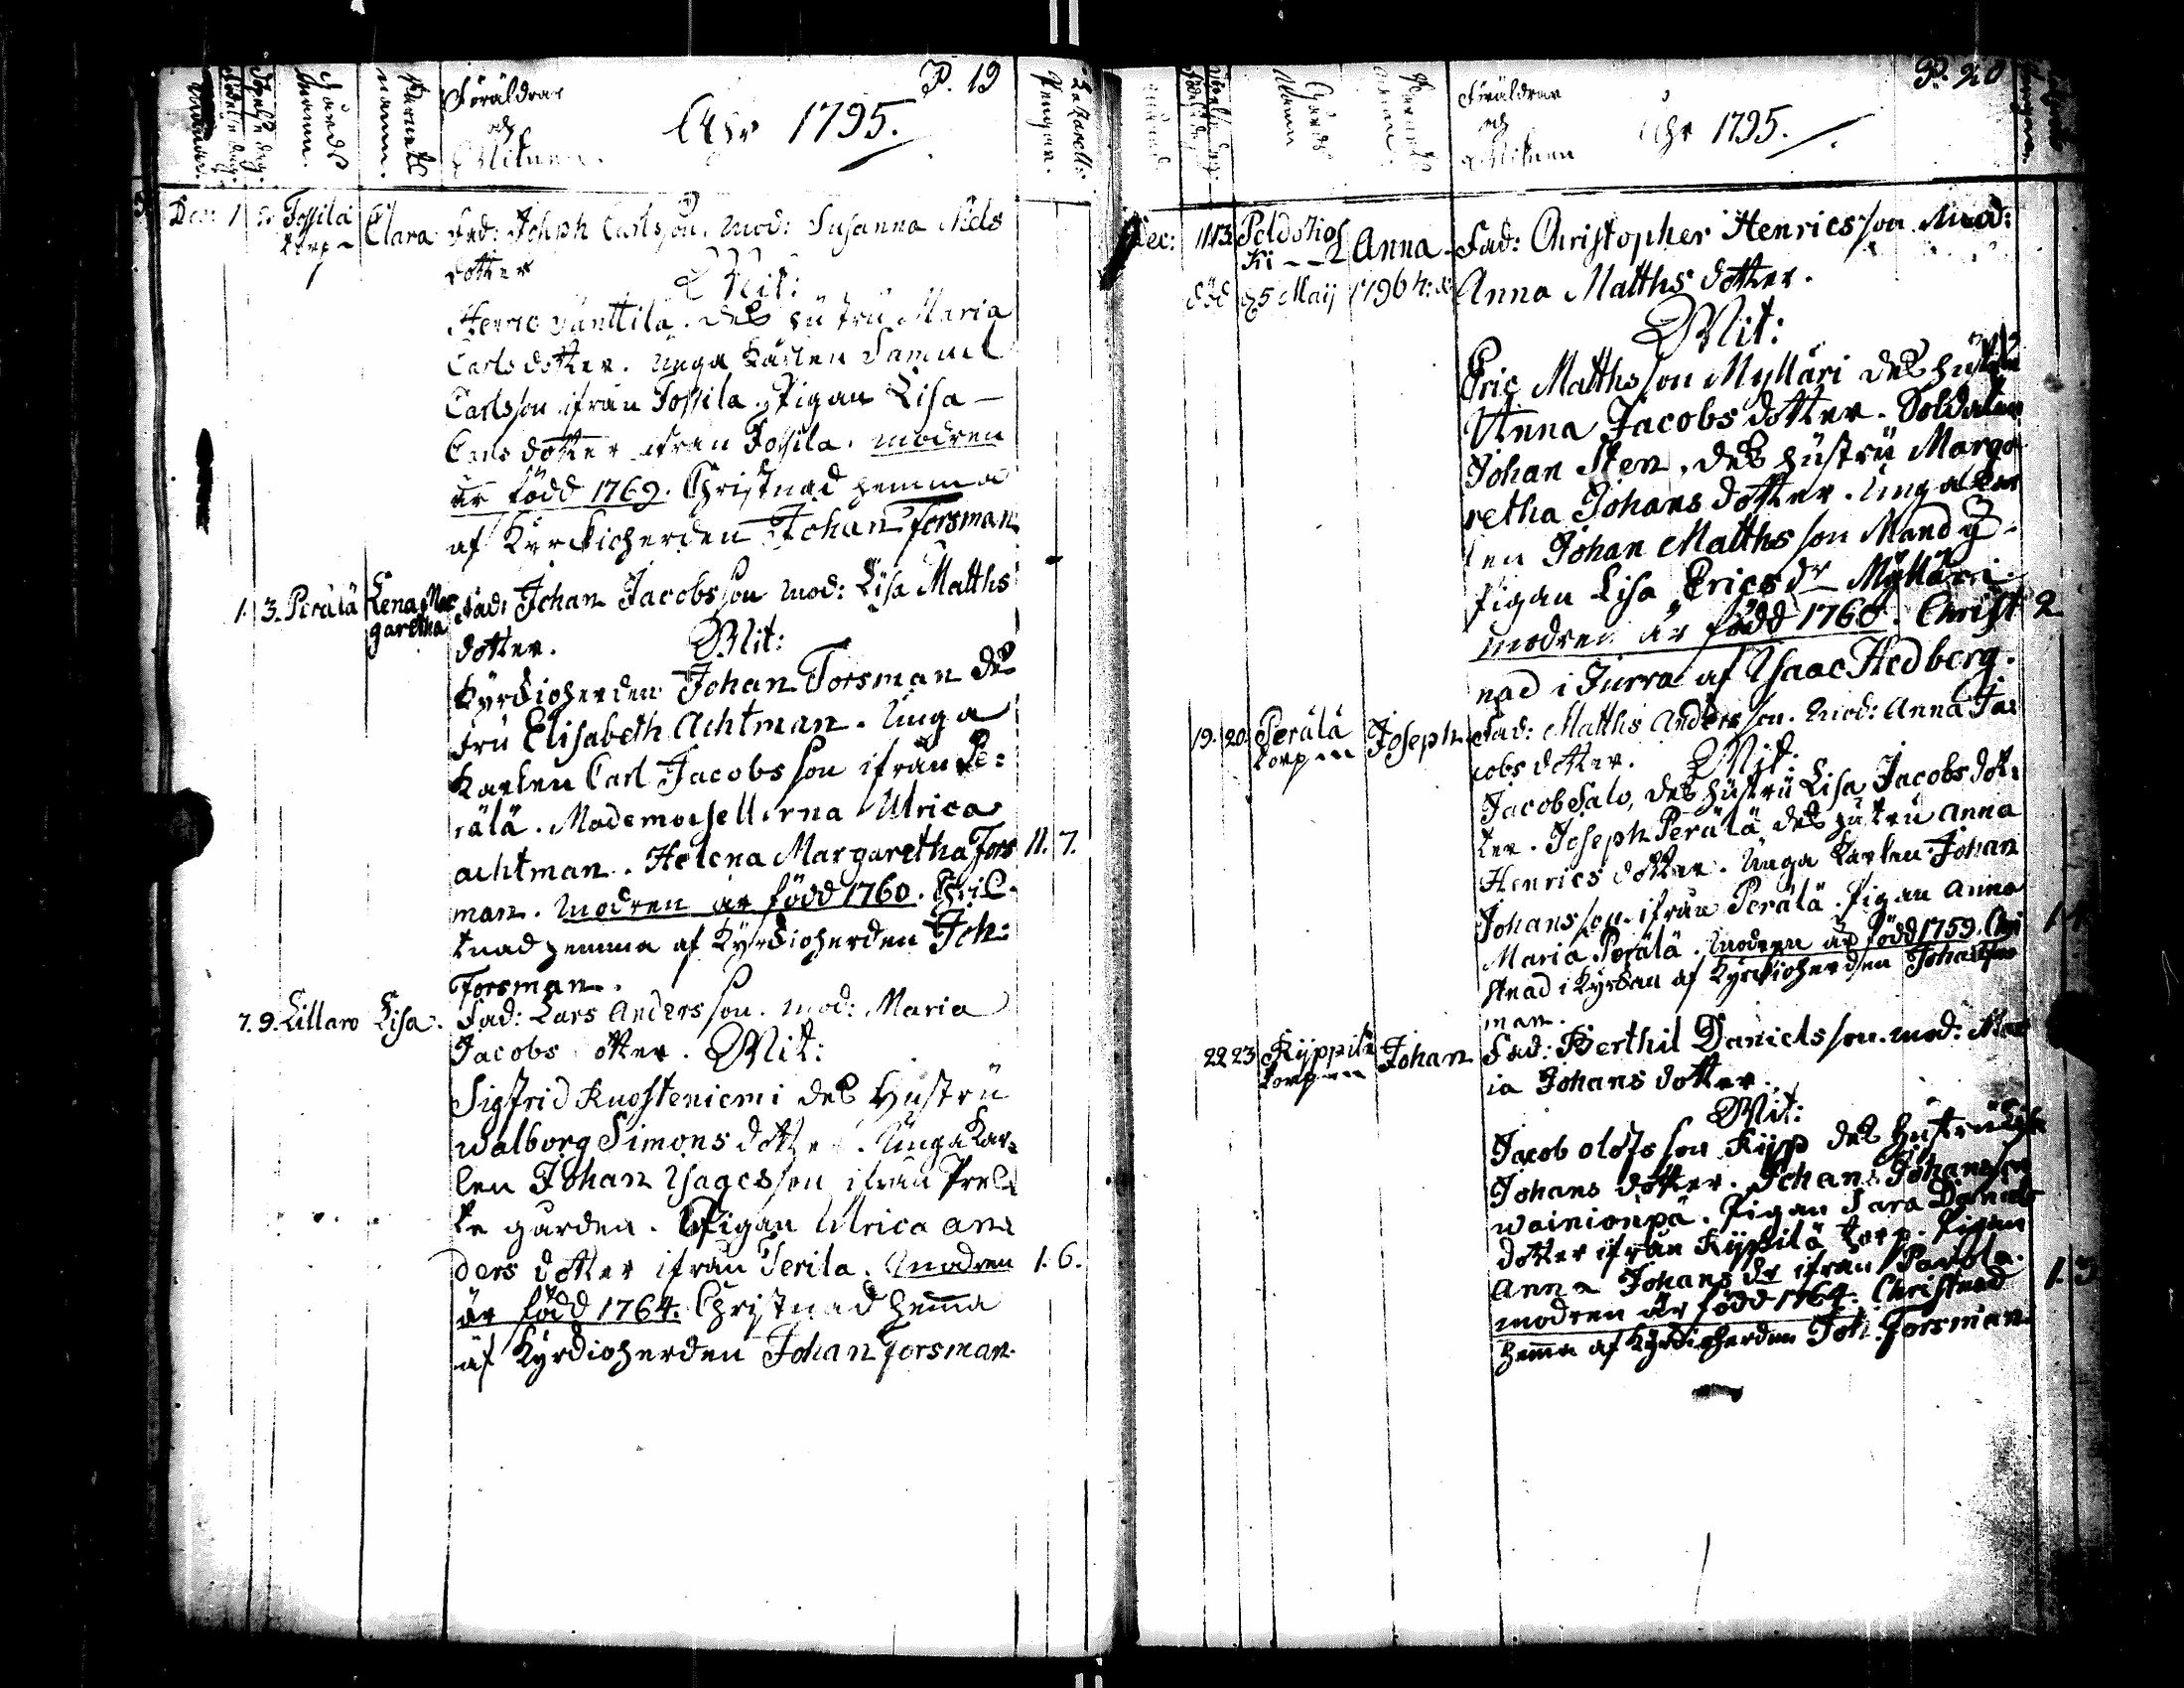 P. 19
Föräldrar
och
Mitnen.
Åhr 1795.
Gårds
namn.
Barnets
namn.
Dec: 1 Fossila Clara Fad: Joseph Carlsson. Mod: Susanna Nils
torp dotter
Mit:
Henric Vänttilä. des hustru Maria
Carls dotter. Unga Karlen Samuel
Carlsson ifrån Fossila. Pigan Lisa
Carls dotter ifrån Fossila. modren
är född 1769. Christnad hemma
af Kyrckioherden Johan Forsman
1. 3. Perälä Lena Mar Fad: Johan Jacobsson Mod: Lisa Matths
garetha dotter. Mit:
Kyrckioherden Johan Forsman des
Fru Elisabeth Achtman. Unga
Karlen Carl Jacobsson ifrån Pe:
rälä. Mademoisellerna Ulrica
achtman. Helena Margaretha Fors 11. 7.
man. Modren är född 1760. Chris
tnad hemma af Kyrckioherden Joh:
Forsman.
7. 9. Lillaro Lisa. Fad: Lars Andersson. Mod: Maria
Jacobs otter. Mit:
Sigfrid Ruosteniemi des Hustru
Walborg Simons dotter. Unga Kar
len Johan Isacsson ifrån
gården. Pigan Ulrica An
ders dotter ifrån Perila. Modren 1. 6.
är född 1764. Christnad hemma
af Kyrckioherden Johan Forsman.
P. 20
Föräldrar
och
Mitnen
Åhr 1795.
Dec: 11 13 Anna Fad: Christopher Henricsson Mod:
död 25 Maij 1796 Anna Matths dotter.
Mit:
Eric Mathsson Mylläri des hustru
Anna Jacobs dotter. Soldaten
Johan Sten, des hustru Marga
retha Johans dotter. Unga Kar
len Johan Matthsson Mand
Pigan Lisa Erics dr Myllari
modren är född 1760. Christ 2
nad i Jurva af Isaac Hedberg.
19. 20. Perälä Joseph Fad: Matths Andersson. Mod: Anna Ja
torpen cobs dotter. Mit:
Jacob Salo, des hustru Lisa Jacobs dot:
ter. Joseph Perälä des hustru Anna
Henrics dotter. Unga Karlen Johan
Johansson ifrån Perälä. Pigan Anna
Maria Perälä. Modren är född 1759. Chri
stnad i Kyrckan af Kyrckioherden Johan Fors
man.
22 23 Kyppilä Johan Fad: Berthil Danielsson. Mod: Mar
torpen ia Johans dotter.
Mit:
Jacob Olofsson Kijpp des Hustru Lisa
Johans dotter. Johan Johansson
Wainionpä. Pigan Sara Daniels
dotter ifrån Kyppilä torp. Pigan
Anna Johans dr ifrån
modren är född 1764. Christnad
hemma af Kyrckioherden Joh. Forsman.